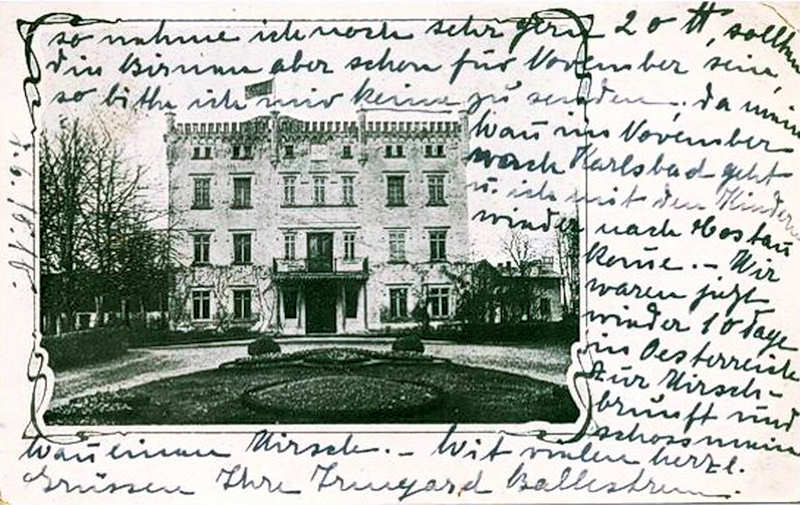 so nehme ich noch sehr gern 20 ℔, sollten
die Birnen aber schon für November sein,
so bitte ich mir keine zu senden, da mein
Mau im November
nach Karlsbad geht
u. ich mit den Kindern
wieder nach Hostau
komme. – Wir
waren jetzt
wieder 10 Tage
in Oesterreich
zur Hirsch-
brunft und
schoss mein
Mau einen Hirsch. – Mit vielen herzl.
Grüssen Ihre Irmgard Ballestrem.